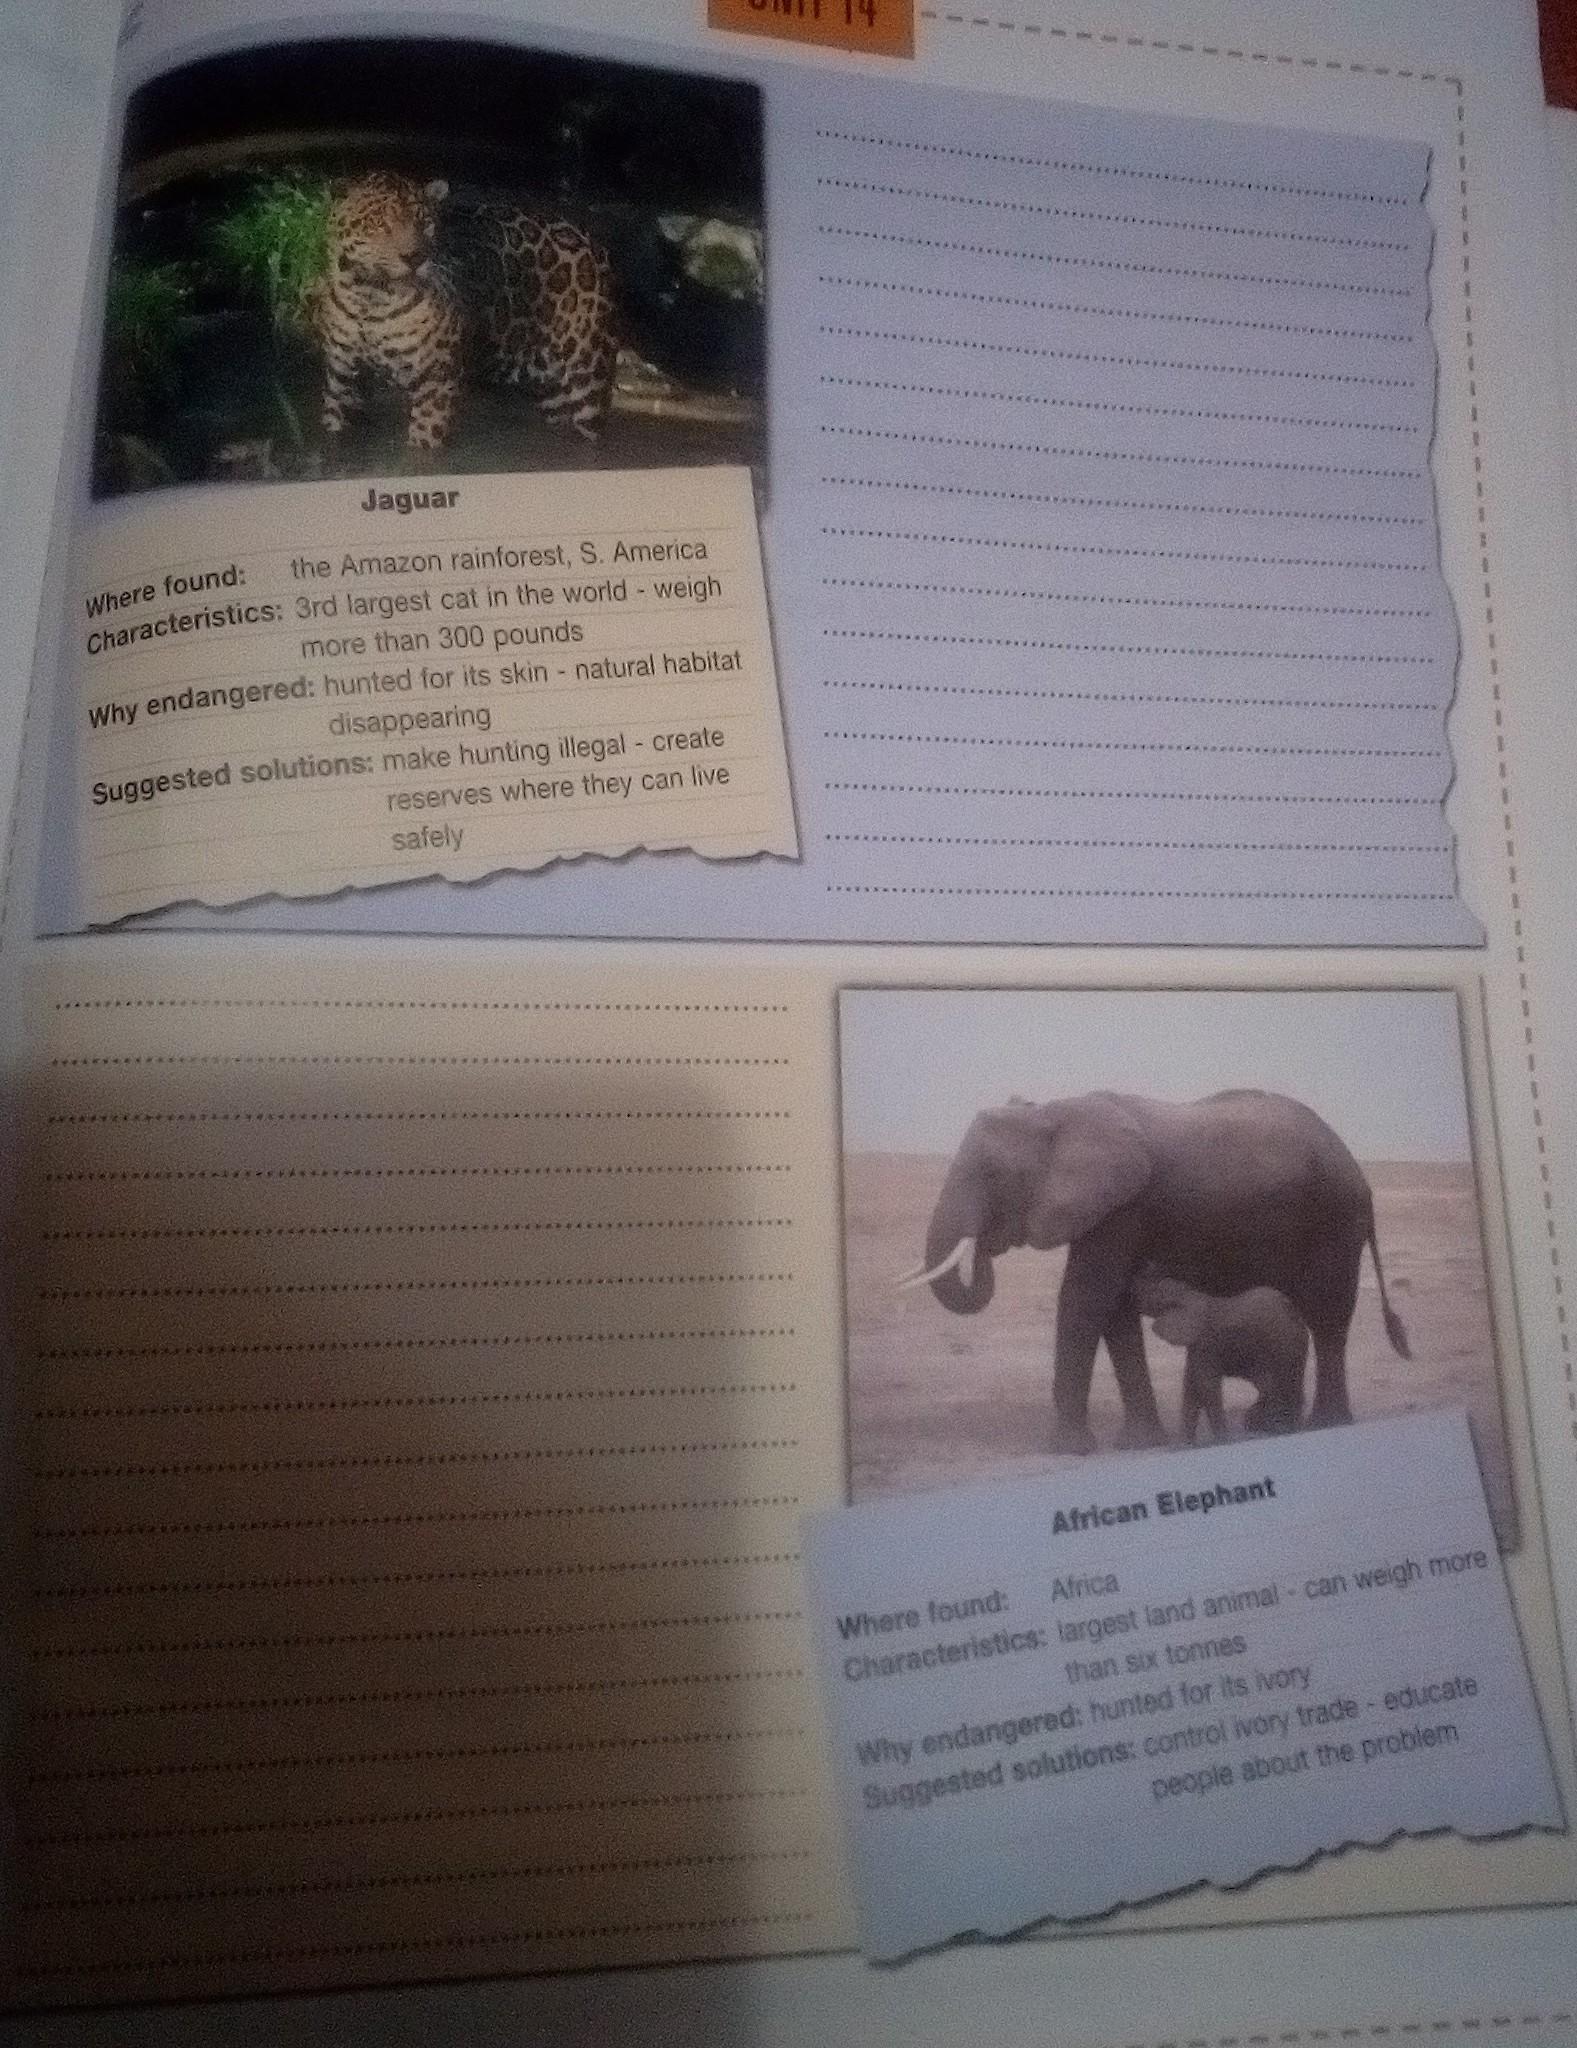 UNIT 14
Jaguar
Where found: the Amazon rainforest, S. America
Characteristics: 3rd largest cat in the world - weigh
more than 300 pounds
Why endangered: hunted for its skin - natural habitat
disappearing
Suggested solutions: make hunting illegal - create
reserves where they can live
safely
African Elephant
Where found: Africa
Characteristics: largest land animal - can weigh more
than six tonnes
Why endangered: hunted for its ivory
Suggested solutions: control ivory trade - educate
people about the problem